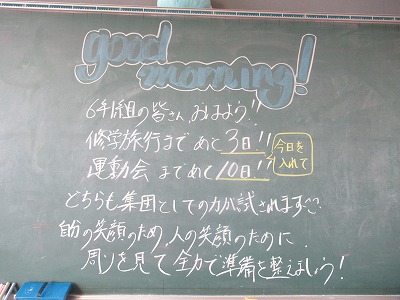 good
morning!
6年1組の皆さん、おはよう!!
修学旅行まであと3日!!
今日を
入れて
運動会まであと10日!!
どちらも集団としての力が試されます
自分の笑顔のため、人の笑顔のために、
周りを見て全力で準備を整えましょう!